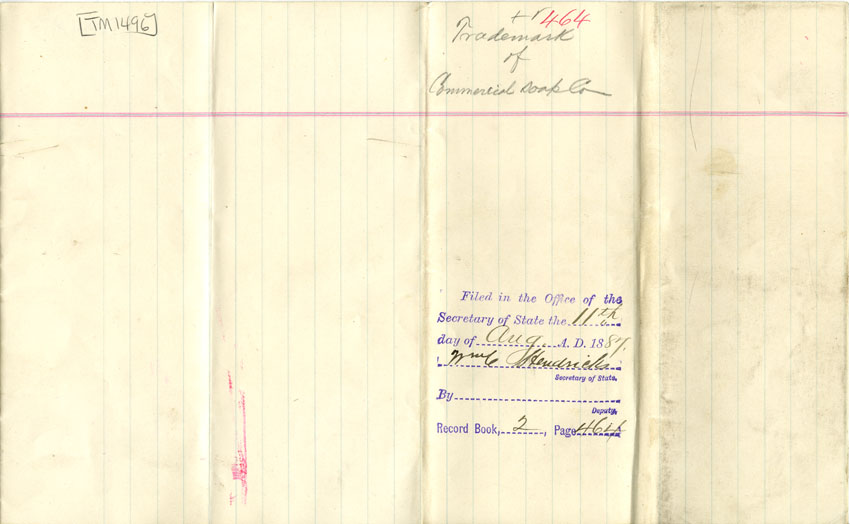 [TM1496]
464
Trademark
of
Commercial Soap Co
Filed in the Office of the
Secretary of State the 11th
day of Aug. A. D. 1887.
Wm C Hendricks
Secretary of State.
By
Deputy.
Record Book, 2, Page 464